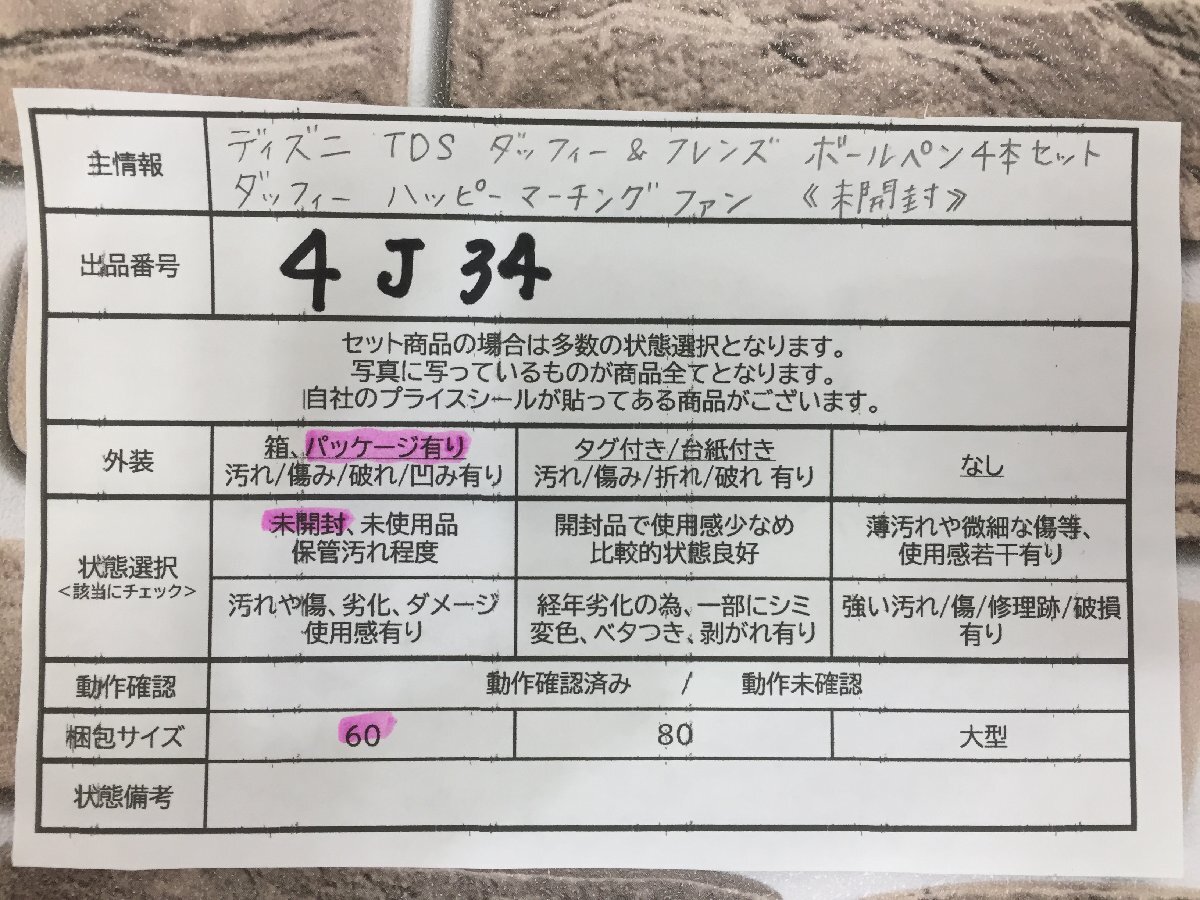 主情報
ディズニ TDS ダッフィー & フレンズ ボールペン4本セット
ダッフィー ハッピーマーチングファン 《未開封》
出品番号
4 J 34
セット商品の場合は多数の状態選択となります。
写真に写っているものが商品全てとなります。
自社のプライスシールが貼ってある商品がございます。
外装
箱、パッケージ有り
汚れ/傷み/破れ/凹み有り
タグ付き/台紙付き
汚れ/傷み/折れ/破れ 有り
なし
状態選択
<該当にチェック>
未開封、未使用品
保管汚れ程度
開封品で使用感少なめ
比較的状態良好
薄汚れや微細な傷等、
使用感若干有り
汚れや傷、劣化、ダメージ
使用感有り
経年劣化の為、一部にシミ
変色、ベタつき、剥がれ有り
強い汚れ/傷/修理跡/破損
有り
動作確認
動作確認済み / 動作未確認
梱包サイズ
60
80
大型
状態備考